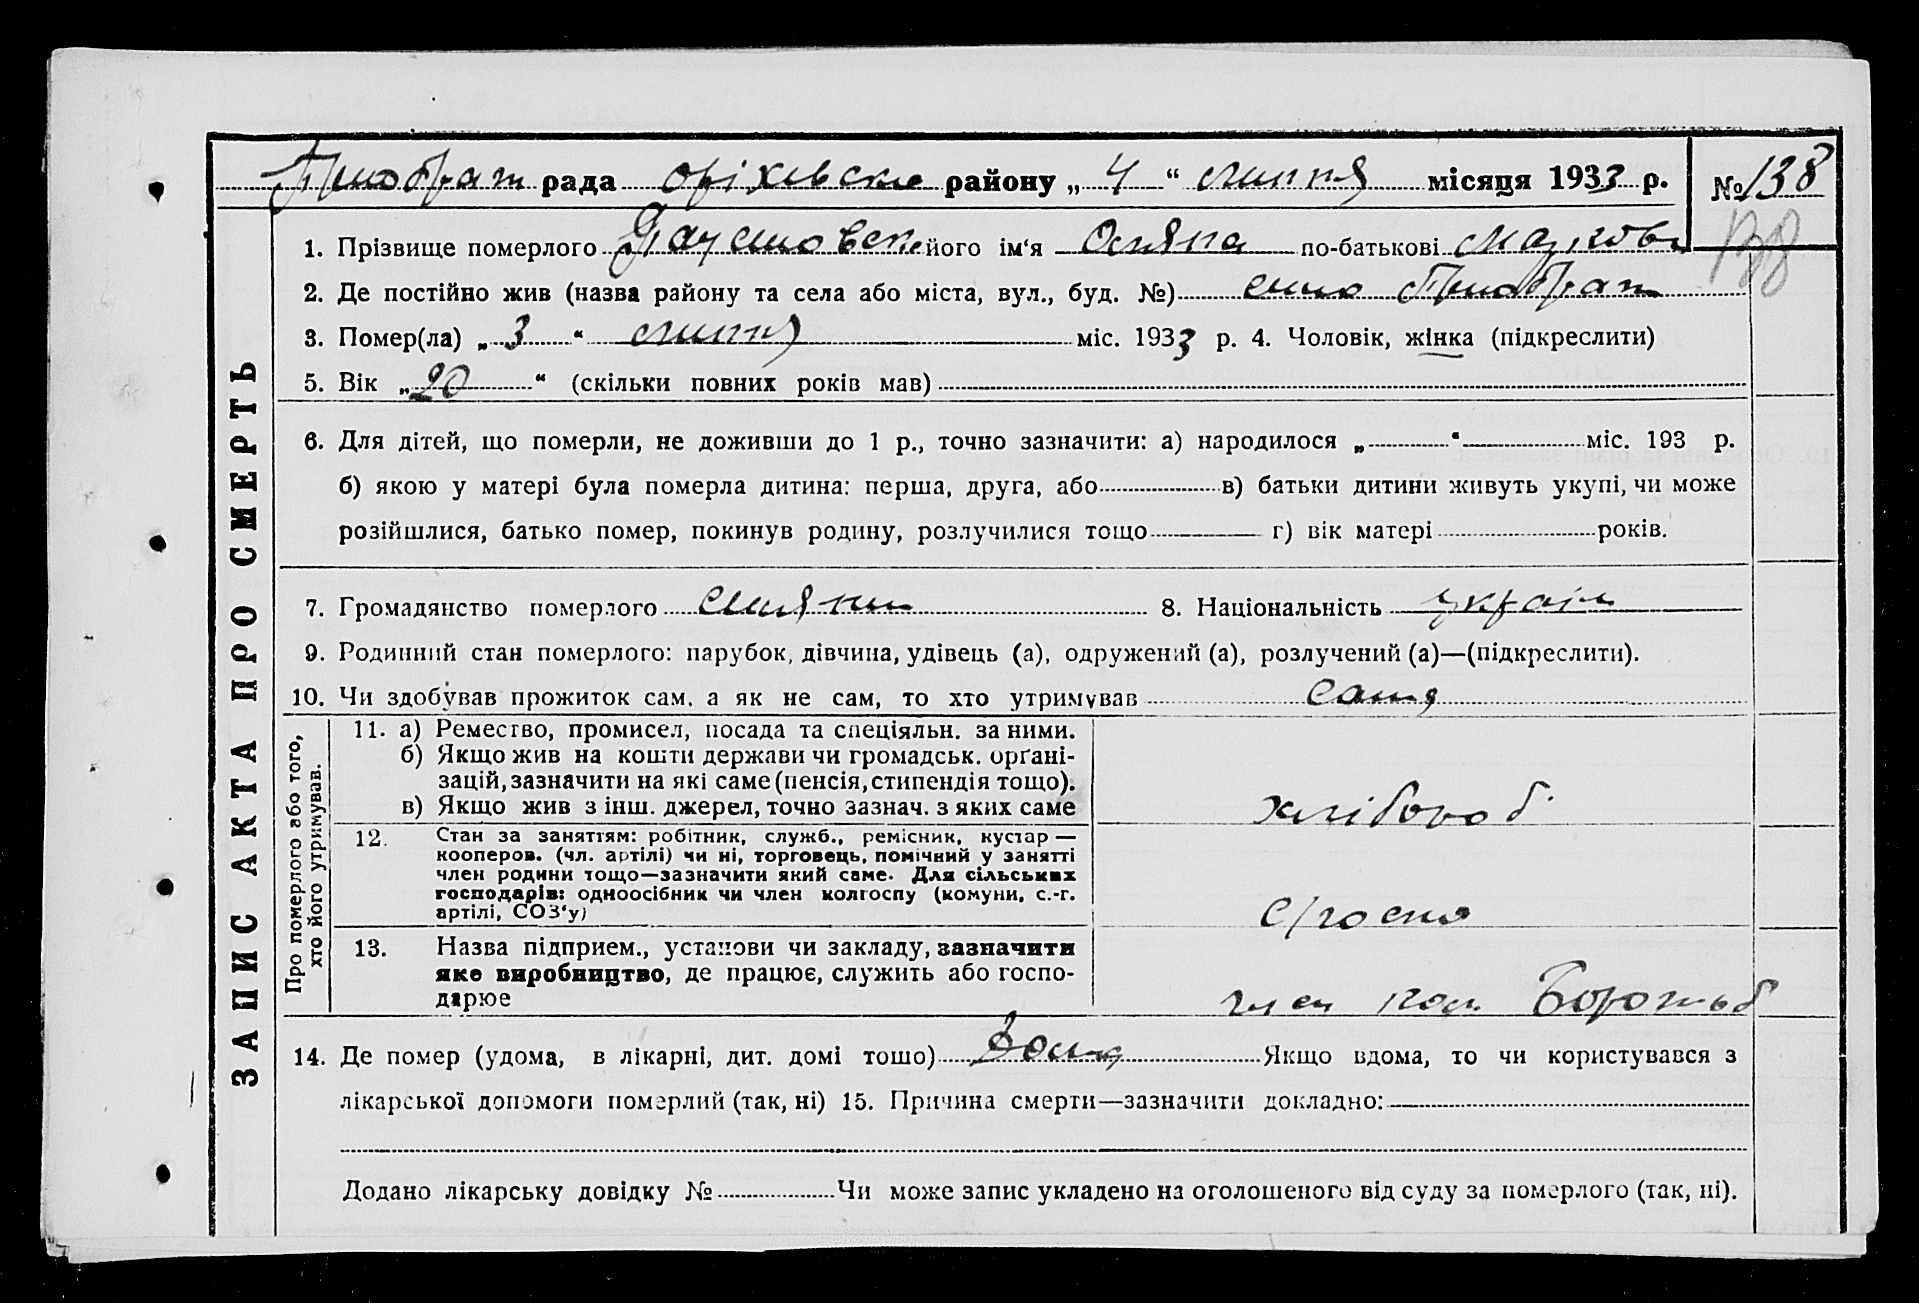 рада оріхівське району „ 4 “ липня місяця 1933 р. № 138
138
1. Прізвище померлого його ім‘я по-батькові
2. Де постійно жив (назва району та села або міста, вул., буд. №) село
3. Помер(ла) „ 3 “ липня міс. 1933 р. 4. Чоловік, жінка (підкреслити)
5. Вік „ 20 “ (скільки повних років мав)
6. Для дітей, що померли, не доживши до 1 р., точно зазначити: а) народилося „ “ міс. 193 р.
б) якою у матері була померла дитина: перша, друга, або в) батьки дитини живуть укупі, чи може
розійшлися, батько помер, покинув родину, розлучилися тощо г) вік матері років.
7. Громадянство померлого 8. Національність україн
9. Родинний стан померлого: парубок, дівчина, удівець (а), одружений (а), розлучений (а)—(підкреслити).
10. Чи здобував прожиток сам, а як не сам, то хто утримував сама
ЗАПИС АКТА ПРО СМЕРТЬ
Про померлого або того,
хто його утримував.
11. а) Ремество, промисел, посада та спеціяльн. за ними.
б) Якщо жив на кошти держави чи громадськ. орґані-
зацій, зазначити на які саме (пенсія, стипендія тощо).
в) Якщо жив з інш. джерел, точно зазнач. з яких саме
хлібороб
12. Стан за заняттям: робітник, служб., ремісник, кустар —
кооперов. (чл. артілі) чи ні, торговець, помічний у занятті
член родини тощо—зазначити який саме. Для сільських
господарів: одноосібник чи член колгоспу (комуни, с.-г.
артілі, СОЗ‘у)
13. Назва підприєм., установи чи закладу, зазначити
яке виробництво, де працює, служить або госпо-
дарює
член
14. Де помер (удома, в лікарні, дит. домі тощо) Дома Якщо вдома, то чи користувався з
лікарської допомоги померлий (так, ні) 15. Причина смерти—зазначити докладно:
Додано лікарську довідку № Чи може запис укладено на оголошеного від суду за померлого (так, ні).